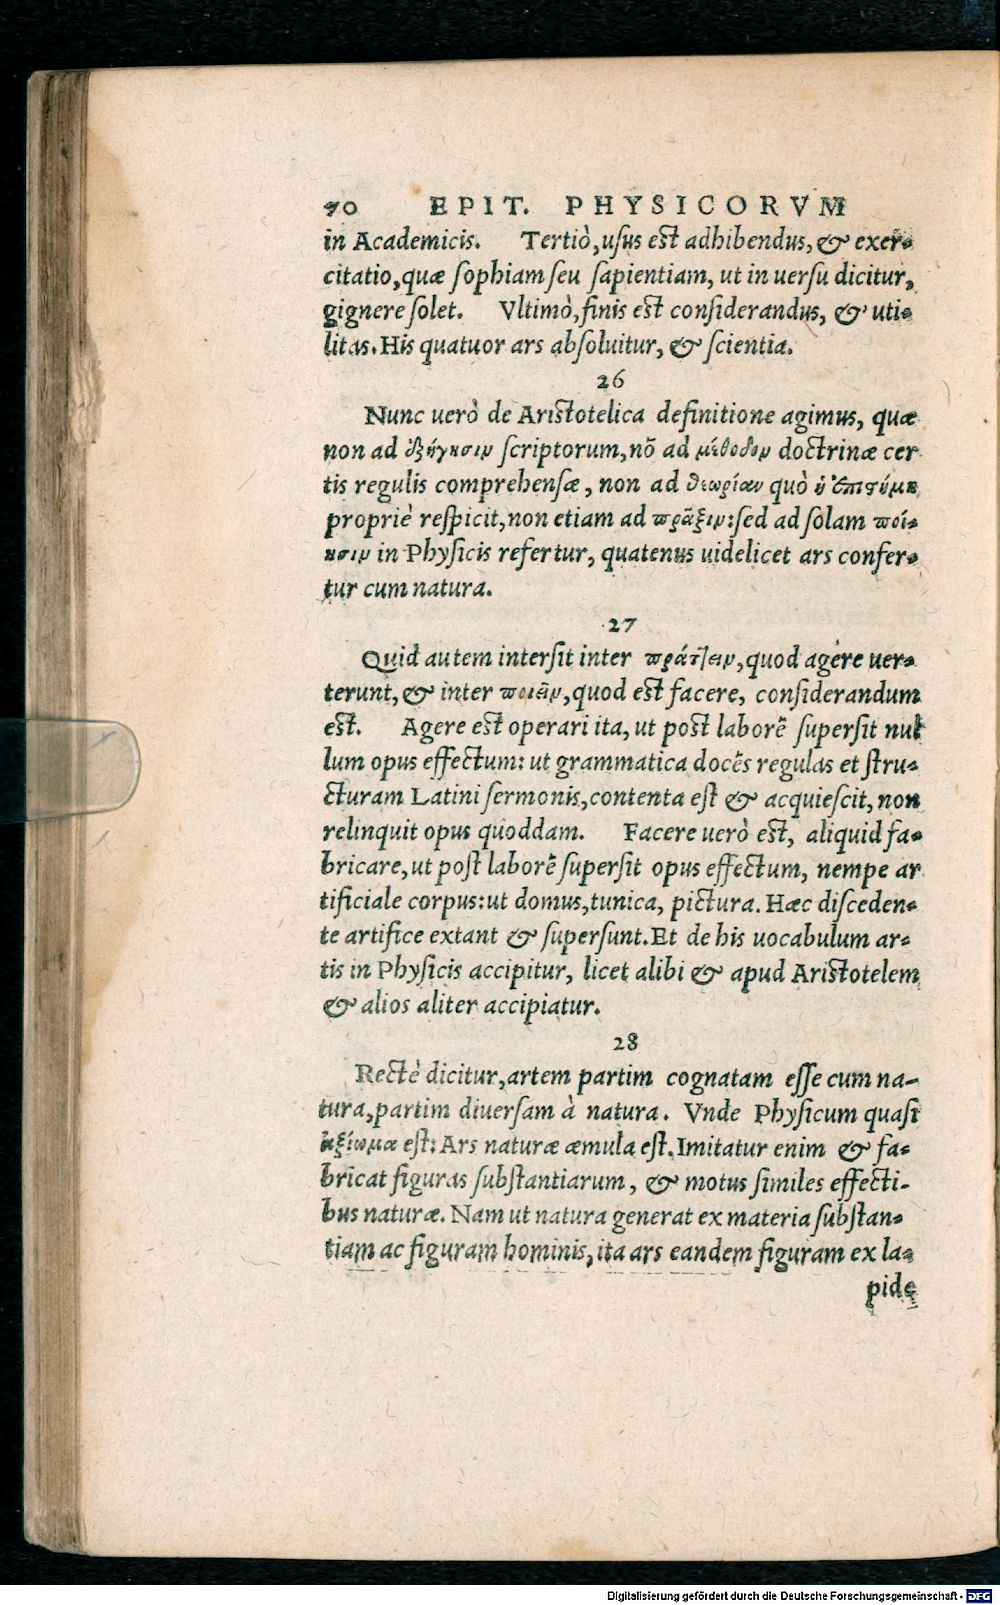 70 EPIT. PHYSICORVM
in Academicis. Tertiò, uſus eſt adhibendus, & exer-
citatio, quæ ſophiam ſeu ſapientiam, ut in uerſu dicitur,
gignere ſolet. Vltimò, finis eſt conſiderandus, & uti-
litas. His quatuor ars abſoluitur, & ſcientia.
26
Nunc uerò de Ariſtotelica definitione agimus, quæ
non ad ἐξήγησιν ſcriptorum, nõ ad μέθοδον doctrinæ cer
tis regulis comprehenſæ, non ad θεωρίαν quò ἡ ἐπιστήμη
propriè reſpicit, non etiam ad πρᾶξιν: ſed ad ſolam ποίη-
σιν in Phyſicis refertur, quatenus uidelicet ars confer-
tur cum natura.
27
Quid autem interſit inter πράττειν, quod agere uer-
terunt, & inter ποιεῖν, quod eſt facere, conſiderandum
eſt. Agere eſt operari ita, ut poſt laborẽ ſuperſit nul
lum opus effectum: ut grammatica docẽs regulas et ſtru-
cturam Latini ſermonis, contenta eſt & acquieſcit, non
relinquit opus quoddam. Facere uerò eſt, aliquid fa-
bricare, ut poſt laborẽ ſuperſit opus effectum, nempe ar
tificiale corpus: ut domus, tunica, pictura. Hæc diſceden-
te artifice extant & ſuperſunt. Et de his uocabulum ar-
tis in Phyſicis accipitur, licet alibi & apud Ariſtotelem
& alios aliter accipiatur.
28
Rectè dicitur, artem partim cognatam eſſe cum na-
tura, partim diuerſam à natura. Vnde Phyſicum quaſi
ἀξίωμα eſt: Ars naturæ æmula eſt. Imitatur enim & fa-
bricat figuras ſubſtantiarum, & motus ſimiles effecti-
bus naturæ. Nam ut natura generat ex materia ſubſtan-
tiam ac figuram hominis, ita ars eandem figuram ex la-
pide
Digitalisierung gefördert durch die Deutsche Forschungsgemeinschaft - DFG